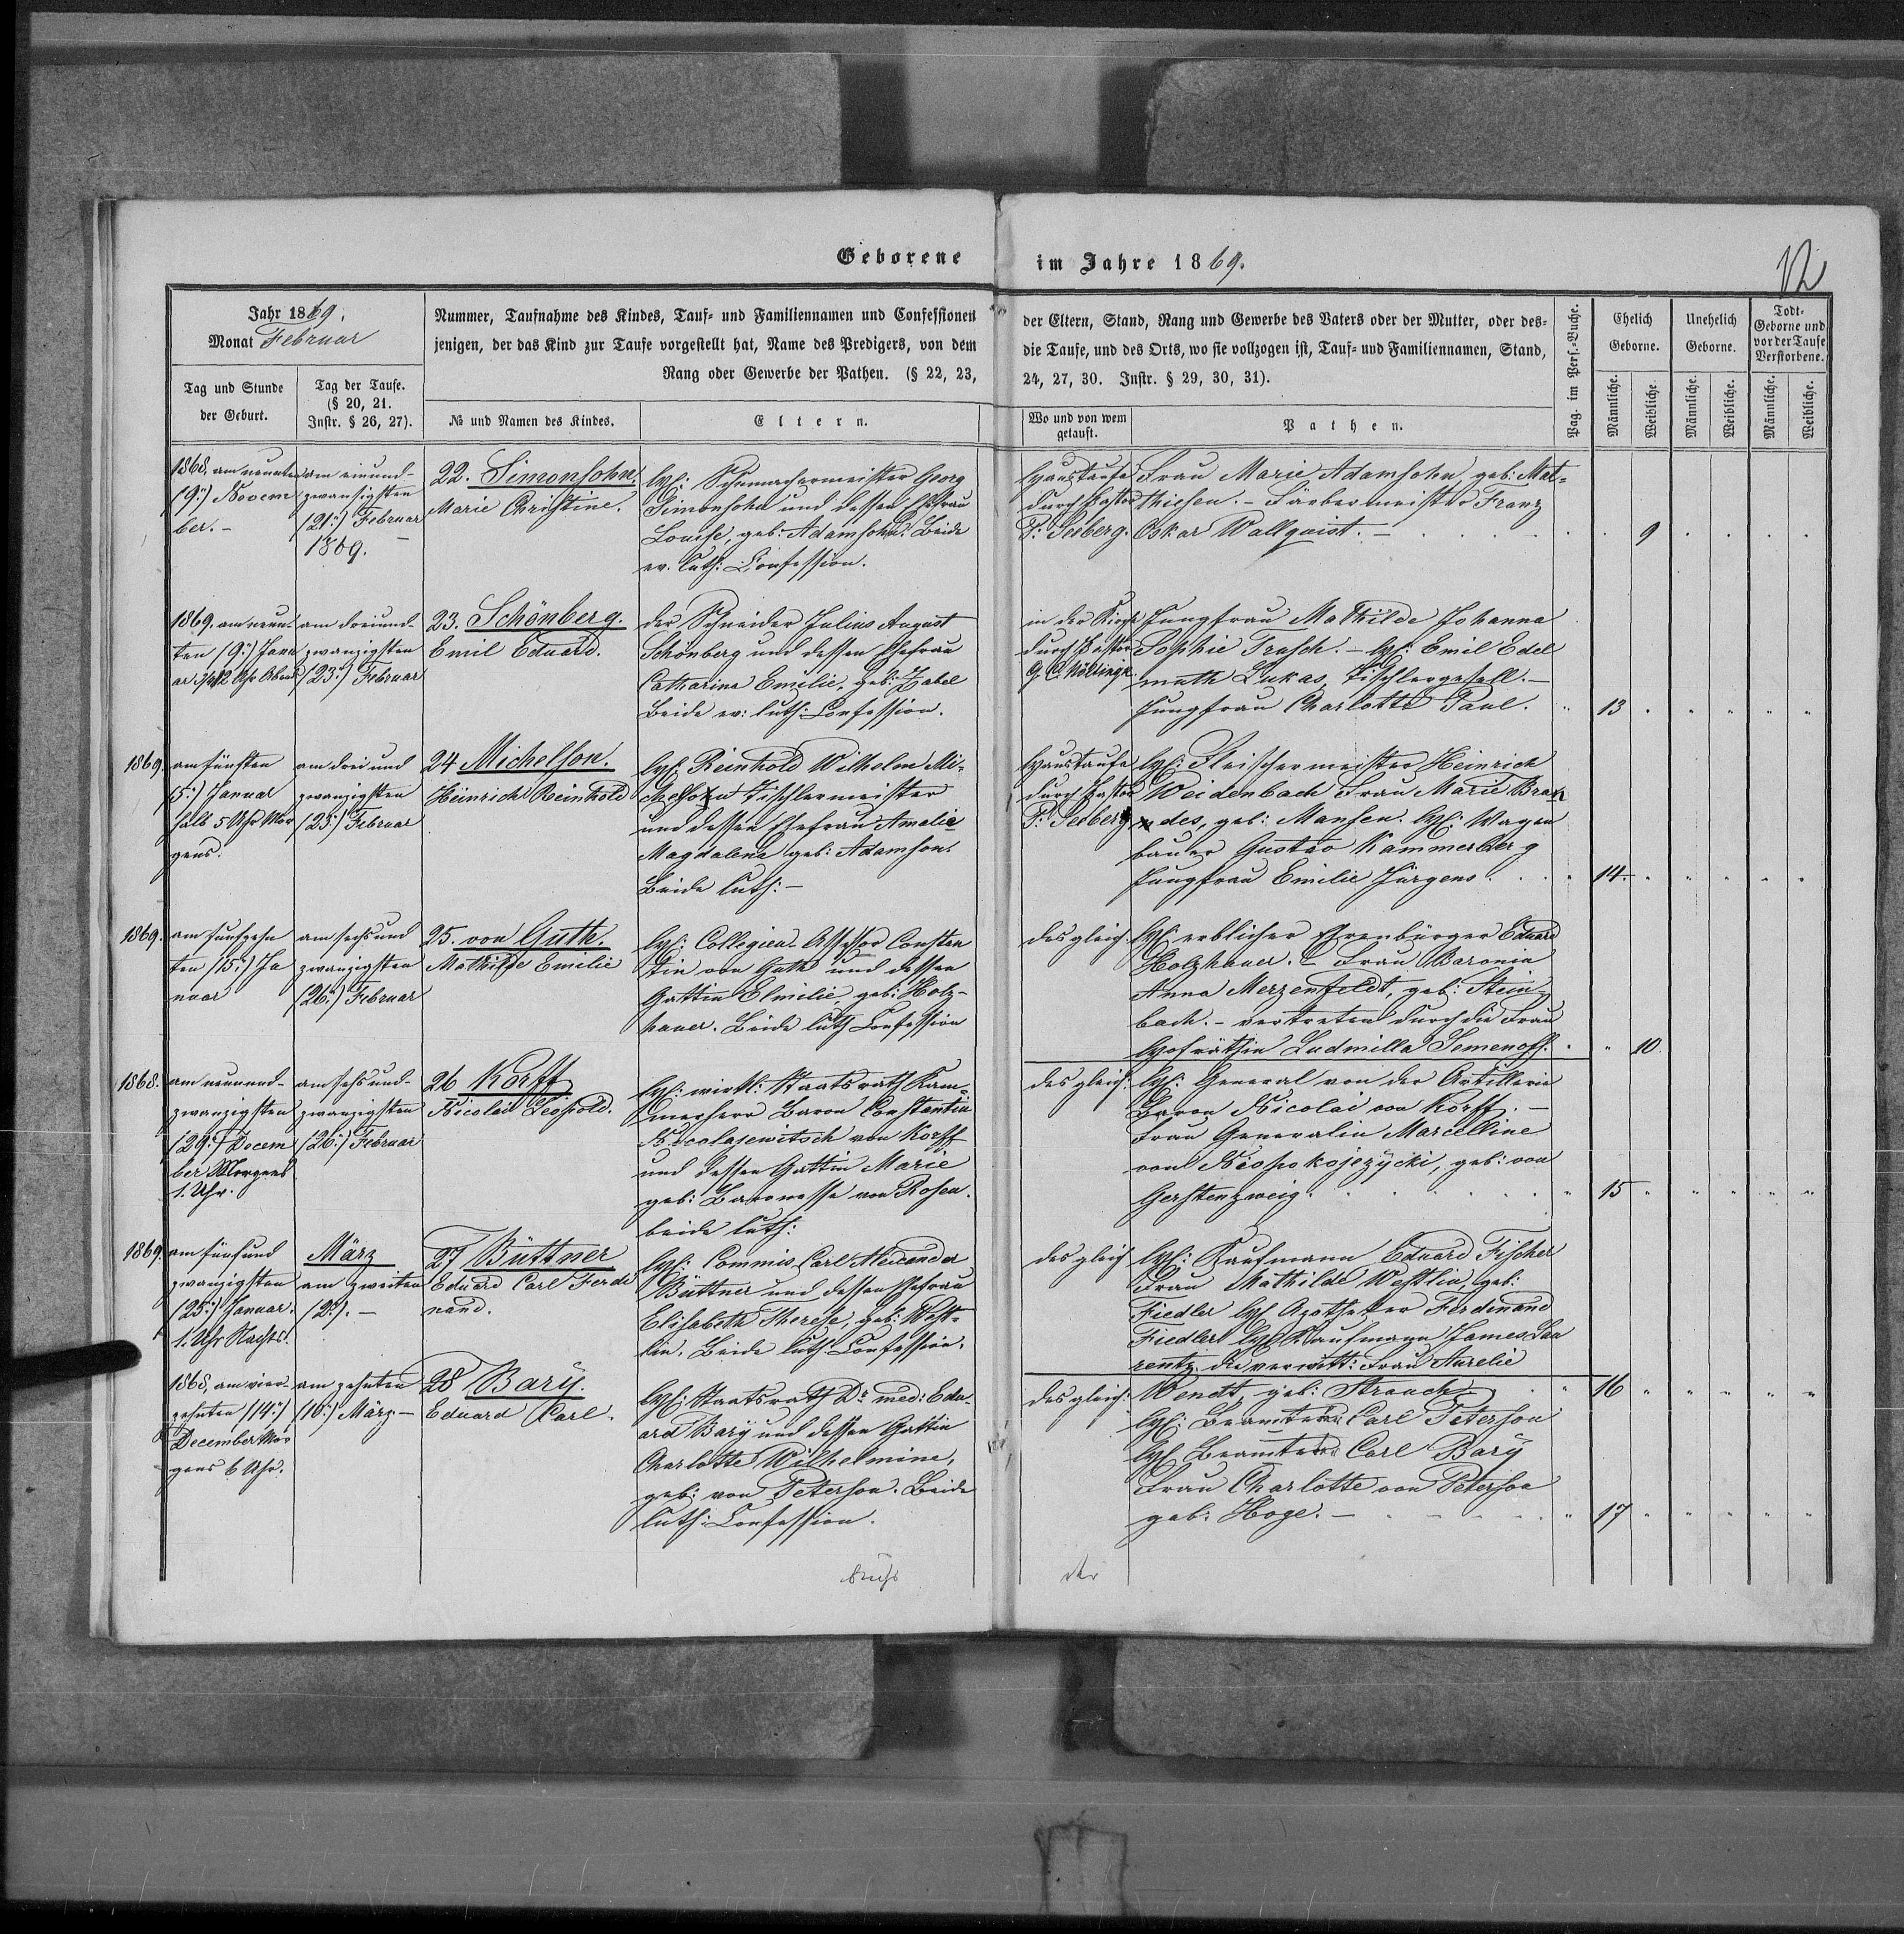 Geborene im Jahre 1869.
12
Jahr 1869.
Monat Februar
Tag und Stunde der Geburt.
Tag der Taufe. (§ 20, 21. Instr. § 26, 27).
Nummer, Taufnahme des Kindes, Tauf- und Familiennamen und Confessionen
jenigen, der das Kind zur Taufe vorgestellt hat, Name des Predigers, von dem
Rang oder Gewerbe der Pathen. (§ 22, 23,
№ und Namen des Kindes.
Eltern.
der Eltern, Stand, Rang und Gewerbe des Vaters oder der Mutter, oder des-
die Taufe, und des Orts, wo sie vollzogen ist, Tauf- und Familiennamen, Stand,
24, 27, 30. Instr. § 29, 30, 31).
Wo und von wem getauft.
Pathen.
Pag. im Pers.-Buche.
Ehelich Geborne.
Unehelich Geborne.
Todt-Geborne und vor der Taufe Verstorbene.
Männliche. Weibliche. Männliche. Weibliche. Männliche. Weibliche.
1868, am neunten
(9:) Novem
ber. –
am einund-
zwanzigsten
(21:) Februar
1869.
22. Simonsohn.
Marie Christine.
H: Schumachermeister Georg
Simonsohn und dessen Ehefrau
Louise, geb: Adamsohn. Beide
ev. luth: Confession.
Haustaufe
durch Pastor
P: Seeberg.
Frau Marie Adamsohn, geb: Mat-
thiesen. – Färbermeister Franz
Oskar Wallquist. –
9
1869. am neun-
ten (9:) Janu
ar 3/4 12 Uhr Abends
am dreiund-
zwanzigsten
(23:) Februar
23. Schönberg.
Emil Eduard.
der Schneider Julius August
Schönberg und dessen Ehefrau
Catharina Emilie, geb: Zabel
Beide ev: luth: Confession.
in der Kirche
durch Pastor
Jungfrau Mathilde Johanna
Sophie Trasch. – H: Emil Edel
muth Lukas, Tischlergesell. –
Jungfrau Charlotte Paul.
13
1869.
am fünften
(5:) Januar
halb 5 Uhr Mor
gens.
am drei und
zwanzigsten
(23:) Februar
24 Michelson.
Heinrich Reinhold
H: Reinhold Wilhelm Mi-
chelsohn Tischlermeister
und dessen Ehefrau Amalie
Magdalena geb: Adamson.
Beide luth: –
Haustaufe
durch Pastor
P: Seeberg
H: Fleischermeister Heinrich
Weidenbach Frau Marie Bran
des, geb: Mansen. H: Wagen
bauer Gustav Kammerberg
Jungfrau Emilie Jürgens.
14.
1869.
am funfzehn
ten (15:) Ja
nuar
am sechs und
zwanzigsten
(26:) Februar
25. von Guth.
Mathilde Emilie
H: Collegien-Assessor Constan
tin von Guth und dessen
Gattin Emilie, geb: Holz-
hauer. Beide luth Confession
des gleich.
H: erblicher Ehrenbürger Eduard
Holzhauer. – Frau Baronin
Anna Merzenfeldt, geb: Stein-
bach. – vertreten durch die Frau
Hofräthin Ludmilla Semenoff.
10
1868.
am neunund-
zwanzigsten
(29:) Decem
ber Morgens
1. Uhr.
am sechsund-
zwanzigsten
(26:) Februar
26 Korff
Nicolai Leopold.
H: wirkl: Staatsrath Kam-
merherr Baron Constantin
Nicolajewitsch von Korff
und dessen Gattin Marie
geb: Baronesse von Rosen.
beide luth:
des gleich:
H: General von der Artillerie
Baron Nicolai von Korff. –
Frau Generalin Marcelline
von Niepokojczycki, geb: von
Gerstenzweig.
15
1869.
am fünfund
zwanzigsten
(25:) Januar.
1. Uhr Nachts.
März
am zweiten
(2:). –
27 Büttner
Eduard Carl Ferdi
nand.
H: Commis Carl Alexander
Büttner und dessen Ehefrau
Elisabeth Therese, geb: West-
lin. Beide luth: Confession.
des gleich
H: Kaufmann Eduard Fischer
Frau Mathilde Westlin, geb:
Fiedler H: Apotheker Ferdinand
Fiedler H: Kaufmann James Lau
rentz. die verwitt: Frau Aurelie
Wendt, geb: Strauch.
16
1868, am vier-
zehnten (14:)
December Mor
gens 6 Uhr.
am zehnten
(10:) März –
28 Barÿ.
Eduard Carl.
H: Staatsrath Dr med: Edu-
ard Barÿ und dessen Gattin
Charlotte Wilhelmine,
geb: von Peterson. Beide
luth: Confession.
des gleich:
H: Beamter Carl Peterson
H: Beamter Carl Barÿ
Frau Charlotte von Peterson
geb: Hoge. –
17